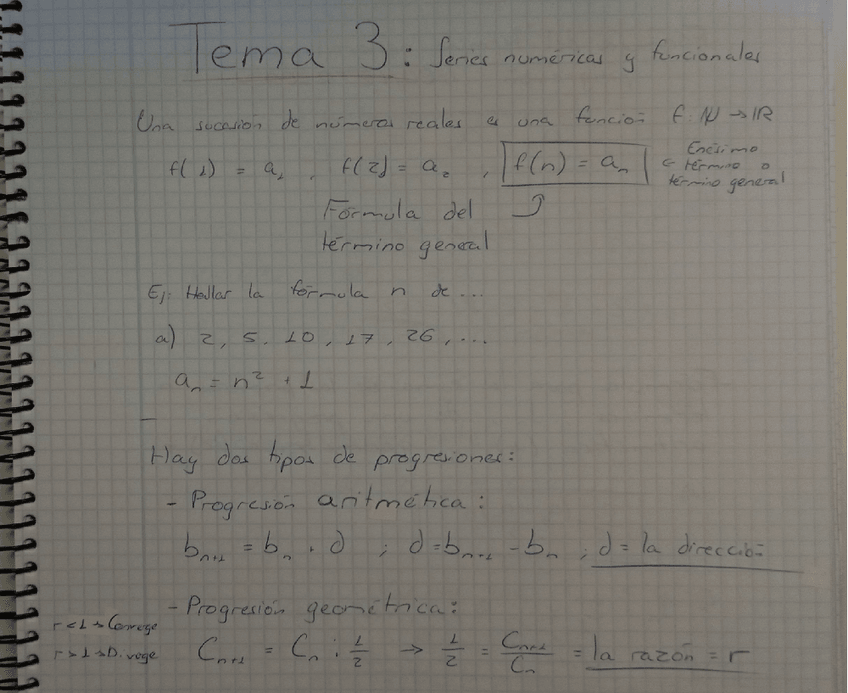 Tema 3: Series numéricas y funcionales
Una sucesión de números reales es una función f: ℕ → ℝ
f(1) = a₁, f(2) = a₂, f(n) = aₙ ← Enésimo término o término general
Fórmula del
término general
Ej: Hallar la fórmula n de...
a) 2, 5, 10, 17, 26, ...
aₙ = n² + 1
Hay dos tipos de progresiones:
- Progresión aritmética:
bₙ₊₁ = bₙ + d ; d = bₙ₊₁ - bₙ ; d = la dirección
- Progresión geométrica:
r < 1 → Converge
r > 1 → Diverge
Cₙ₊₁ = Cₙ · 1/2 → 1/2 = Cₙ₊₁/Cₙ = la razón = r